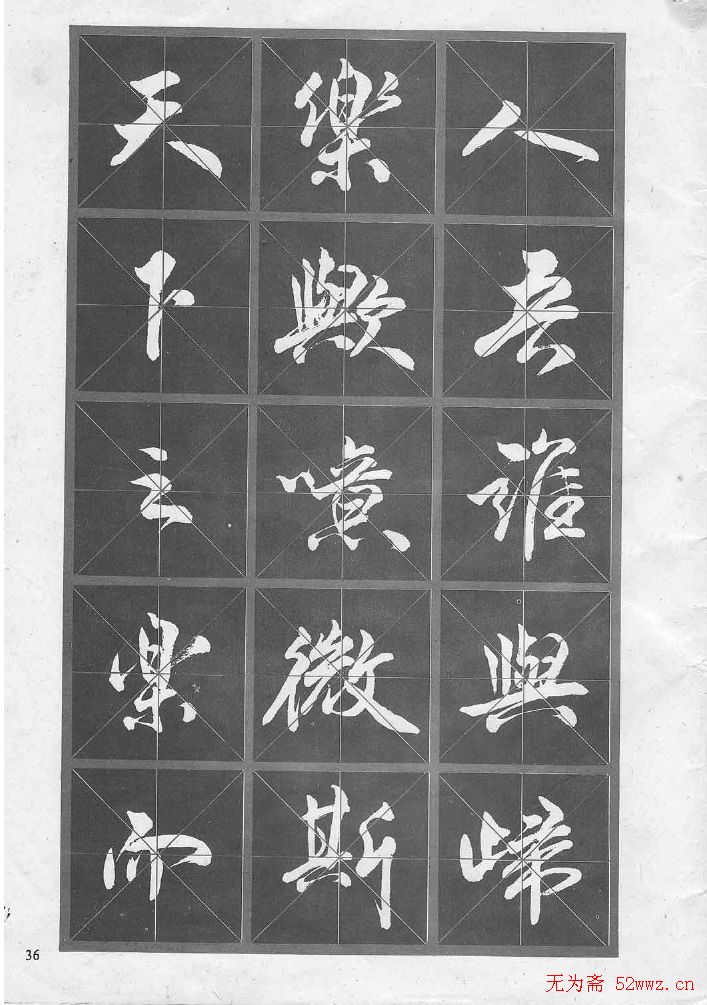 天下之樂而
樂歟噫微斯
人吾誰與歸
36
无为斋 52wwz.cn